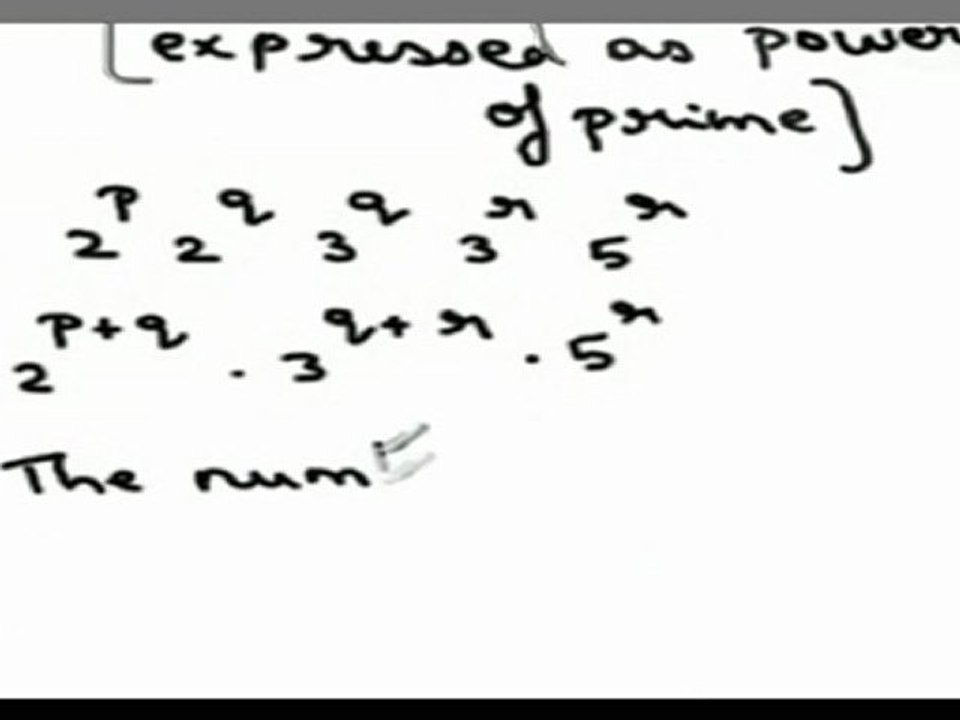 [expressed as power
of prime]
2^p 2^q 3^q 3^r 5^r
2^(p+q) . 3^(q+r) . 5^r
The num